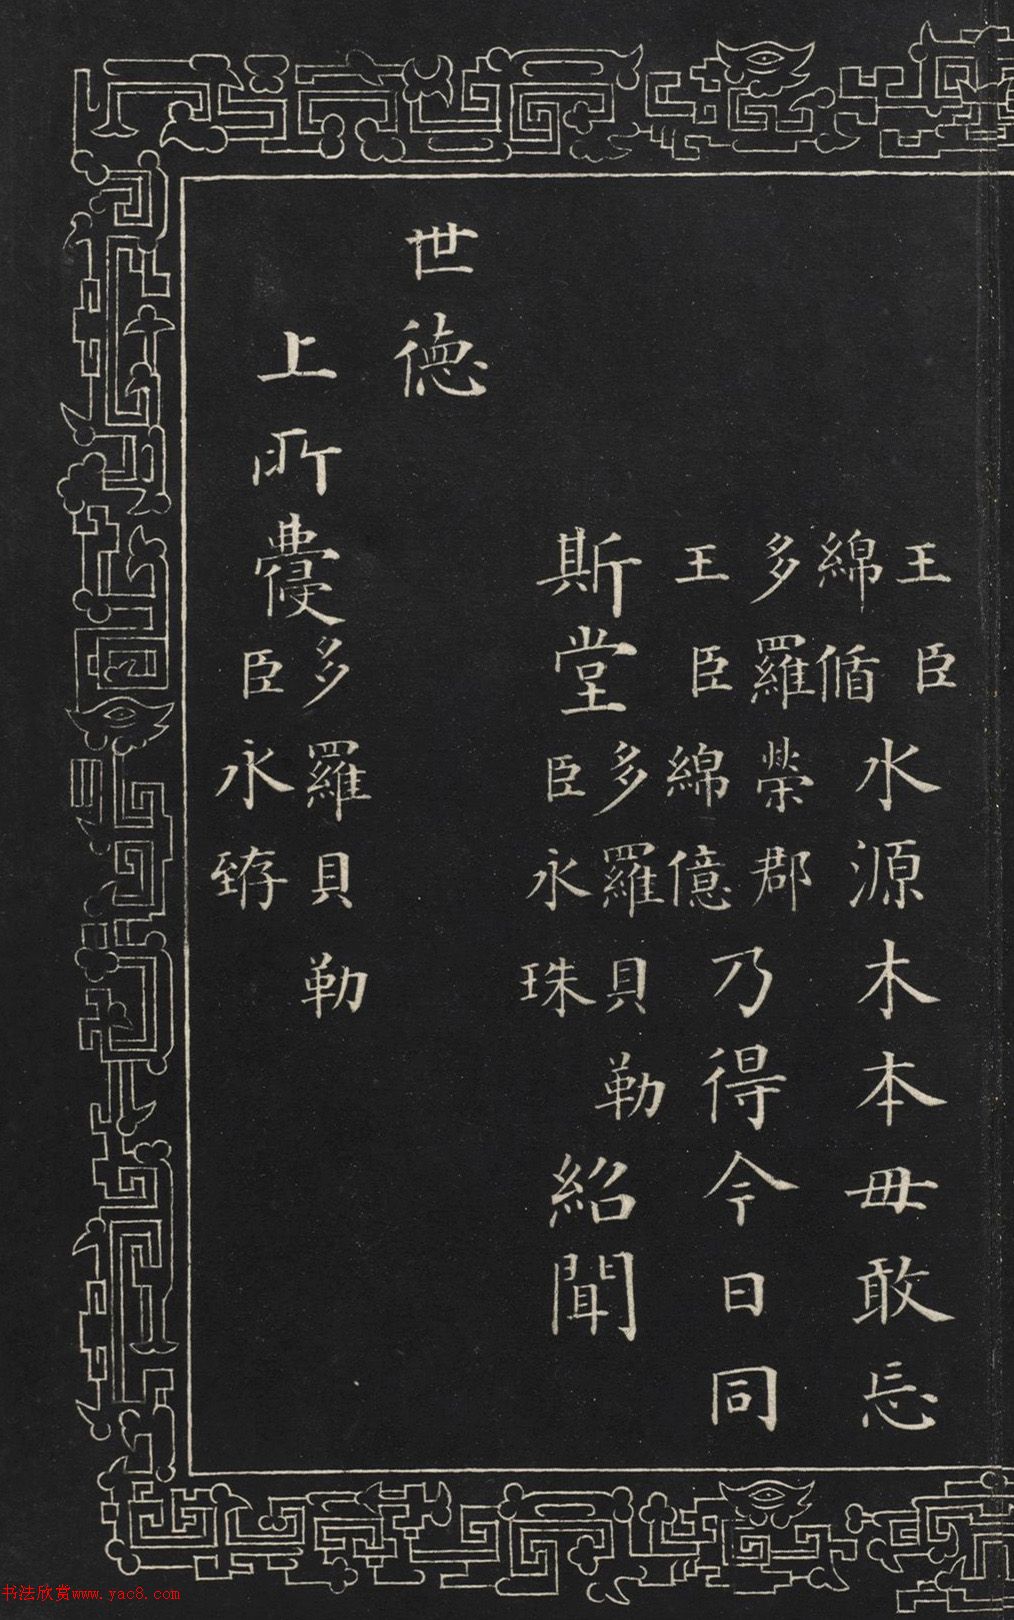 王臣
綿偱
水源木本毋敢忘
多羅榮郡
王臣綿億
乃得今日同
斯堂
多羅貝勒
臣永珠
紹聞
世德
上所
多羅貝勒
臣永臶
书法欣赏www.yac8.com